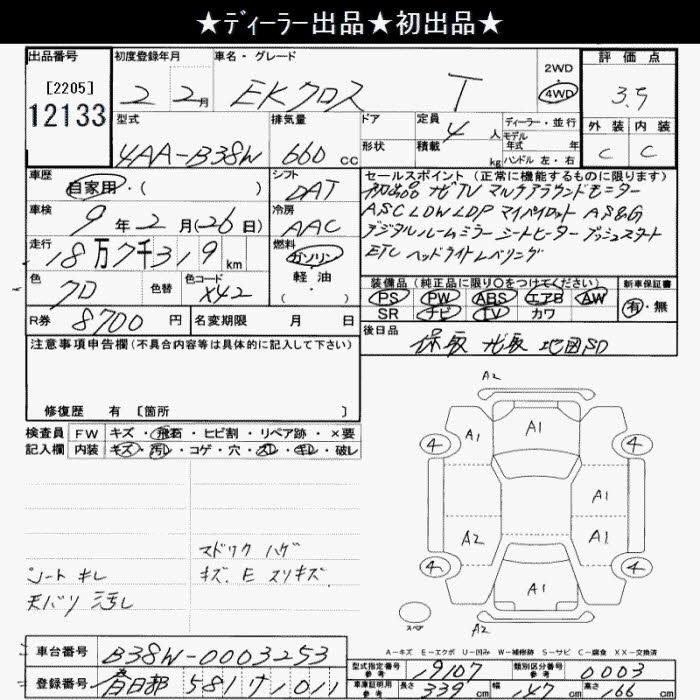 ★ディーラー出品★初出品★
出品番号 初度登録年月 車名・グレード 2WD・4WD 評価点
[2205]
12133
2 2月 EKクロス T 3.5
型式 排気量 ドア 定員 4人 ディーラー・並行 外装 内装
形状 積載 kg モデル年式 年 ハンドル 左・右 C C
4AA-B38W 660cc
車歴 自家用・( ) シフト DAT
セールスポイント(正常に機能するものに限ります)
初出品 ナビTV マルチアラウンドモニター
ASC LDW LDP マイパイロット AS&G
デジタルルームミラー シートヒーター プッシュスタート
ETC ヘッドライトレベリング
車検 9年2月(26日) 冷房 AAC
走行 18万7千319km 燃料 ガソリン・軽油・( )
色 クロ 色替 色コード X42
装備品(純正品に限り○をつけてください) 新車保証書
PS PW ABS エアB AW 有・無
SR ナビ TV カワ
R券 8700円 名変期限 月 日
後日品 保取 ナ取 地図SD
注意事項申告欄(不具合内容等は具体的に記入して下さい)
修復歴 有 [箇所 ]
検査員 FW キズ・飛石・ヒビ割・リペア跡・×要
記入欄 内装 キズ・汚レ・コゲ・穴・スレ・キレ・破レ
マドワク ハゲ
キズ、E スリキズ
シート キレ
天バリ 汚レ
A2
A1 A1
4 4
A1
A2 A1
4 4
A1
スペア A2
A-キズ E-エクボ U-凹み W-補修跡 S-サビ C-腐食 XX-交換済
車台番号 B38W-0003253
型式指定番号 参考 19107 類別区分番号 参考 0003
登録番号 春日部 581 1011
車庫証明用 参考 長さ 339cm 幅 147cm 高さ 166cm